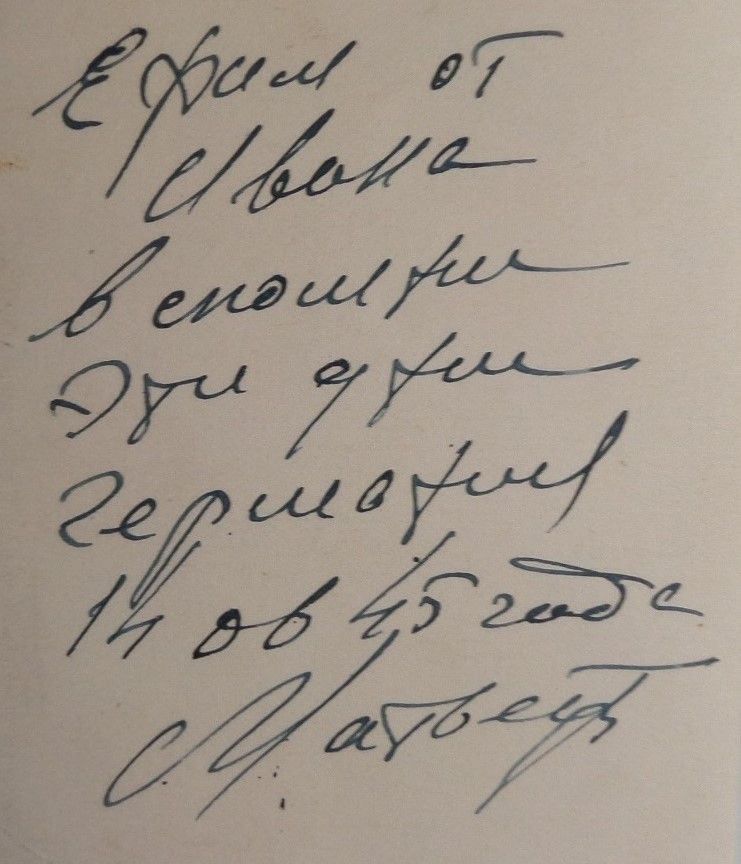 Ефим от
Ивана
вспомни
Эти дни
германия
14 08 45 года
Матвеев